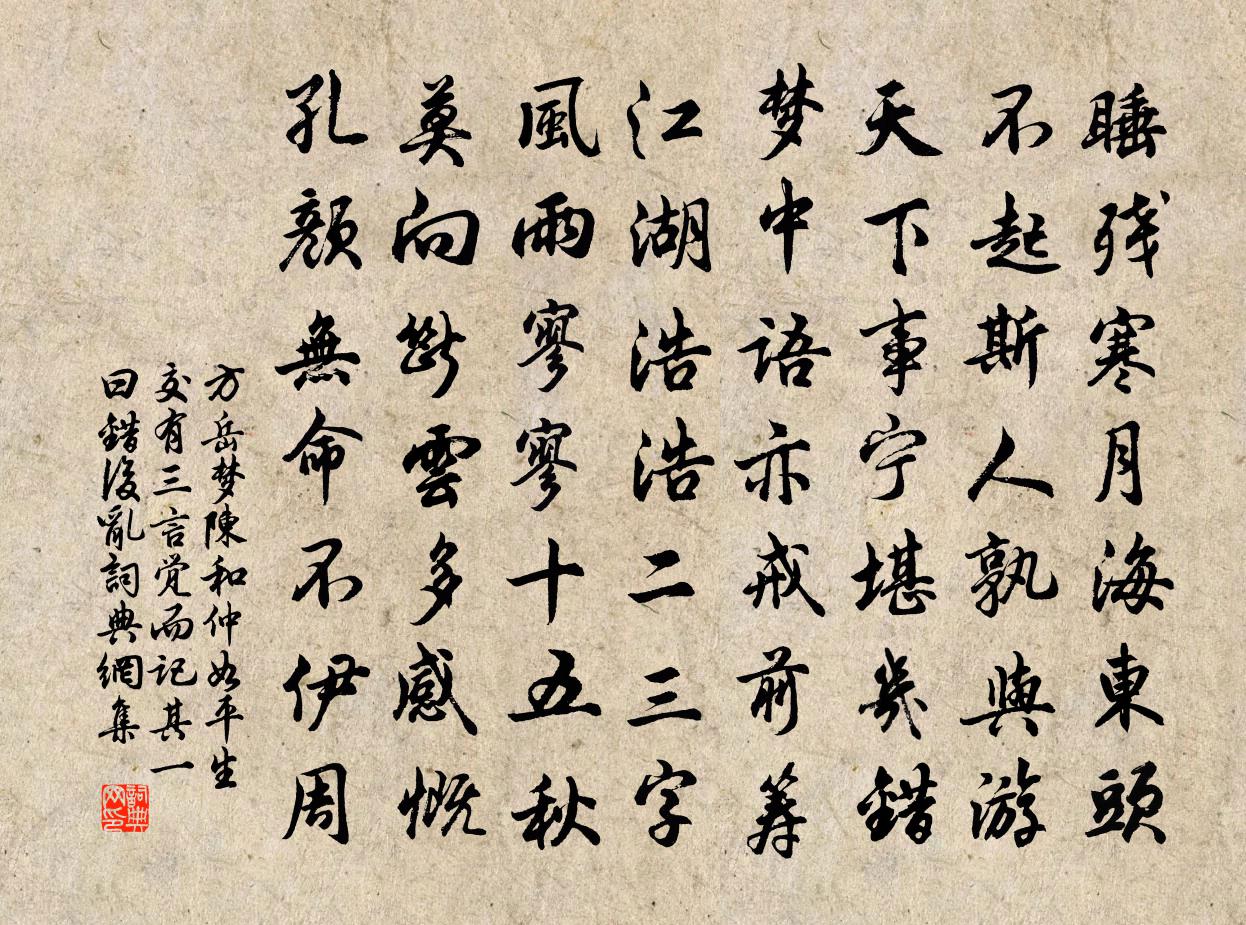 睡残寒月海東頭
不起斯人孰與游
天下事宁堪幾錯
梦中語亦戒前筹
江湖浩浩二三字
風雨寥寥十五秋
莫向断雲多感慨
孔顏無命不伊周
方岳梦陳和仲如平生
交有三言觉而記其一
曰錯後亂詞典網集
詞典
网印